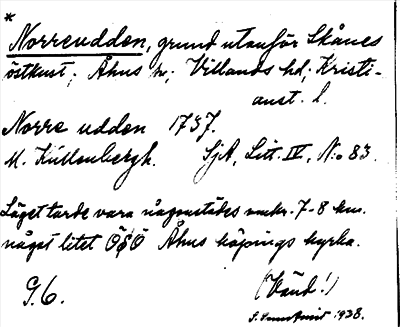 *
Norreudden, grund utanför Skånes
östkust; Åhus sn; Villands hd; Kristi-
anst. l.
Norre udden 1737.
M. Küllenbergh. SjA, Litt. IV, N:o 83.
Läget torde vara någonstädes omkr. 7-8 km.
något litet ÖSÖ Åhus köpings kyrka.
G. C. (Vänd!)
1938.